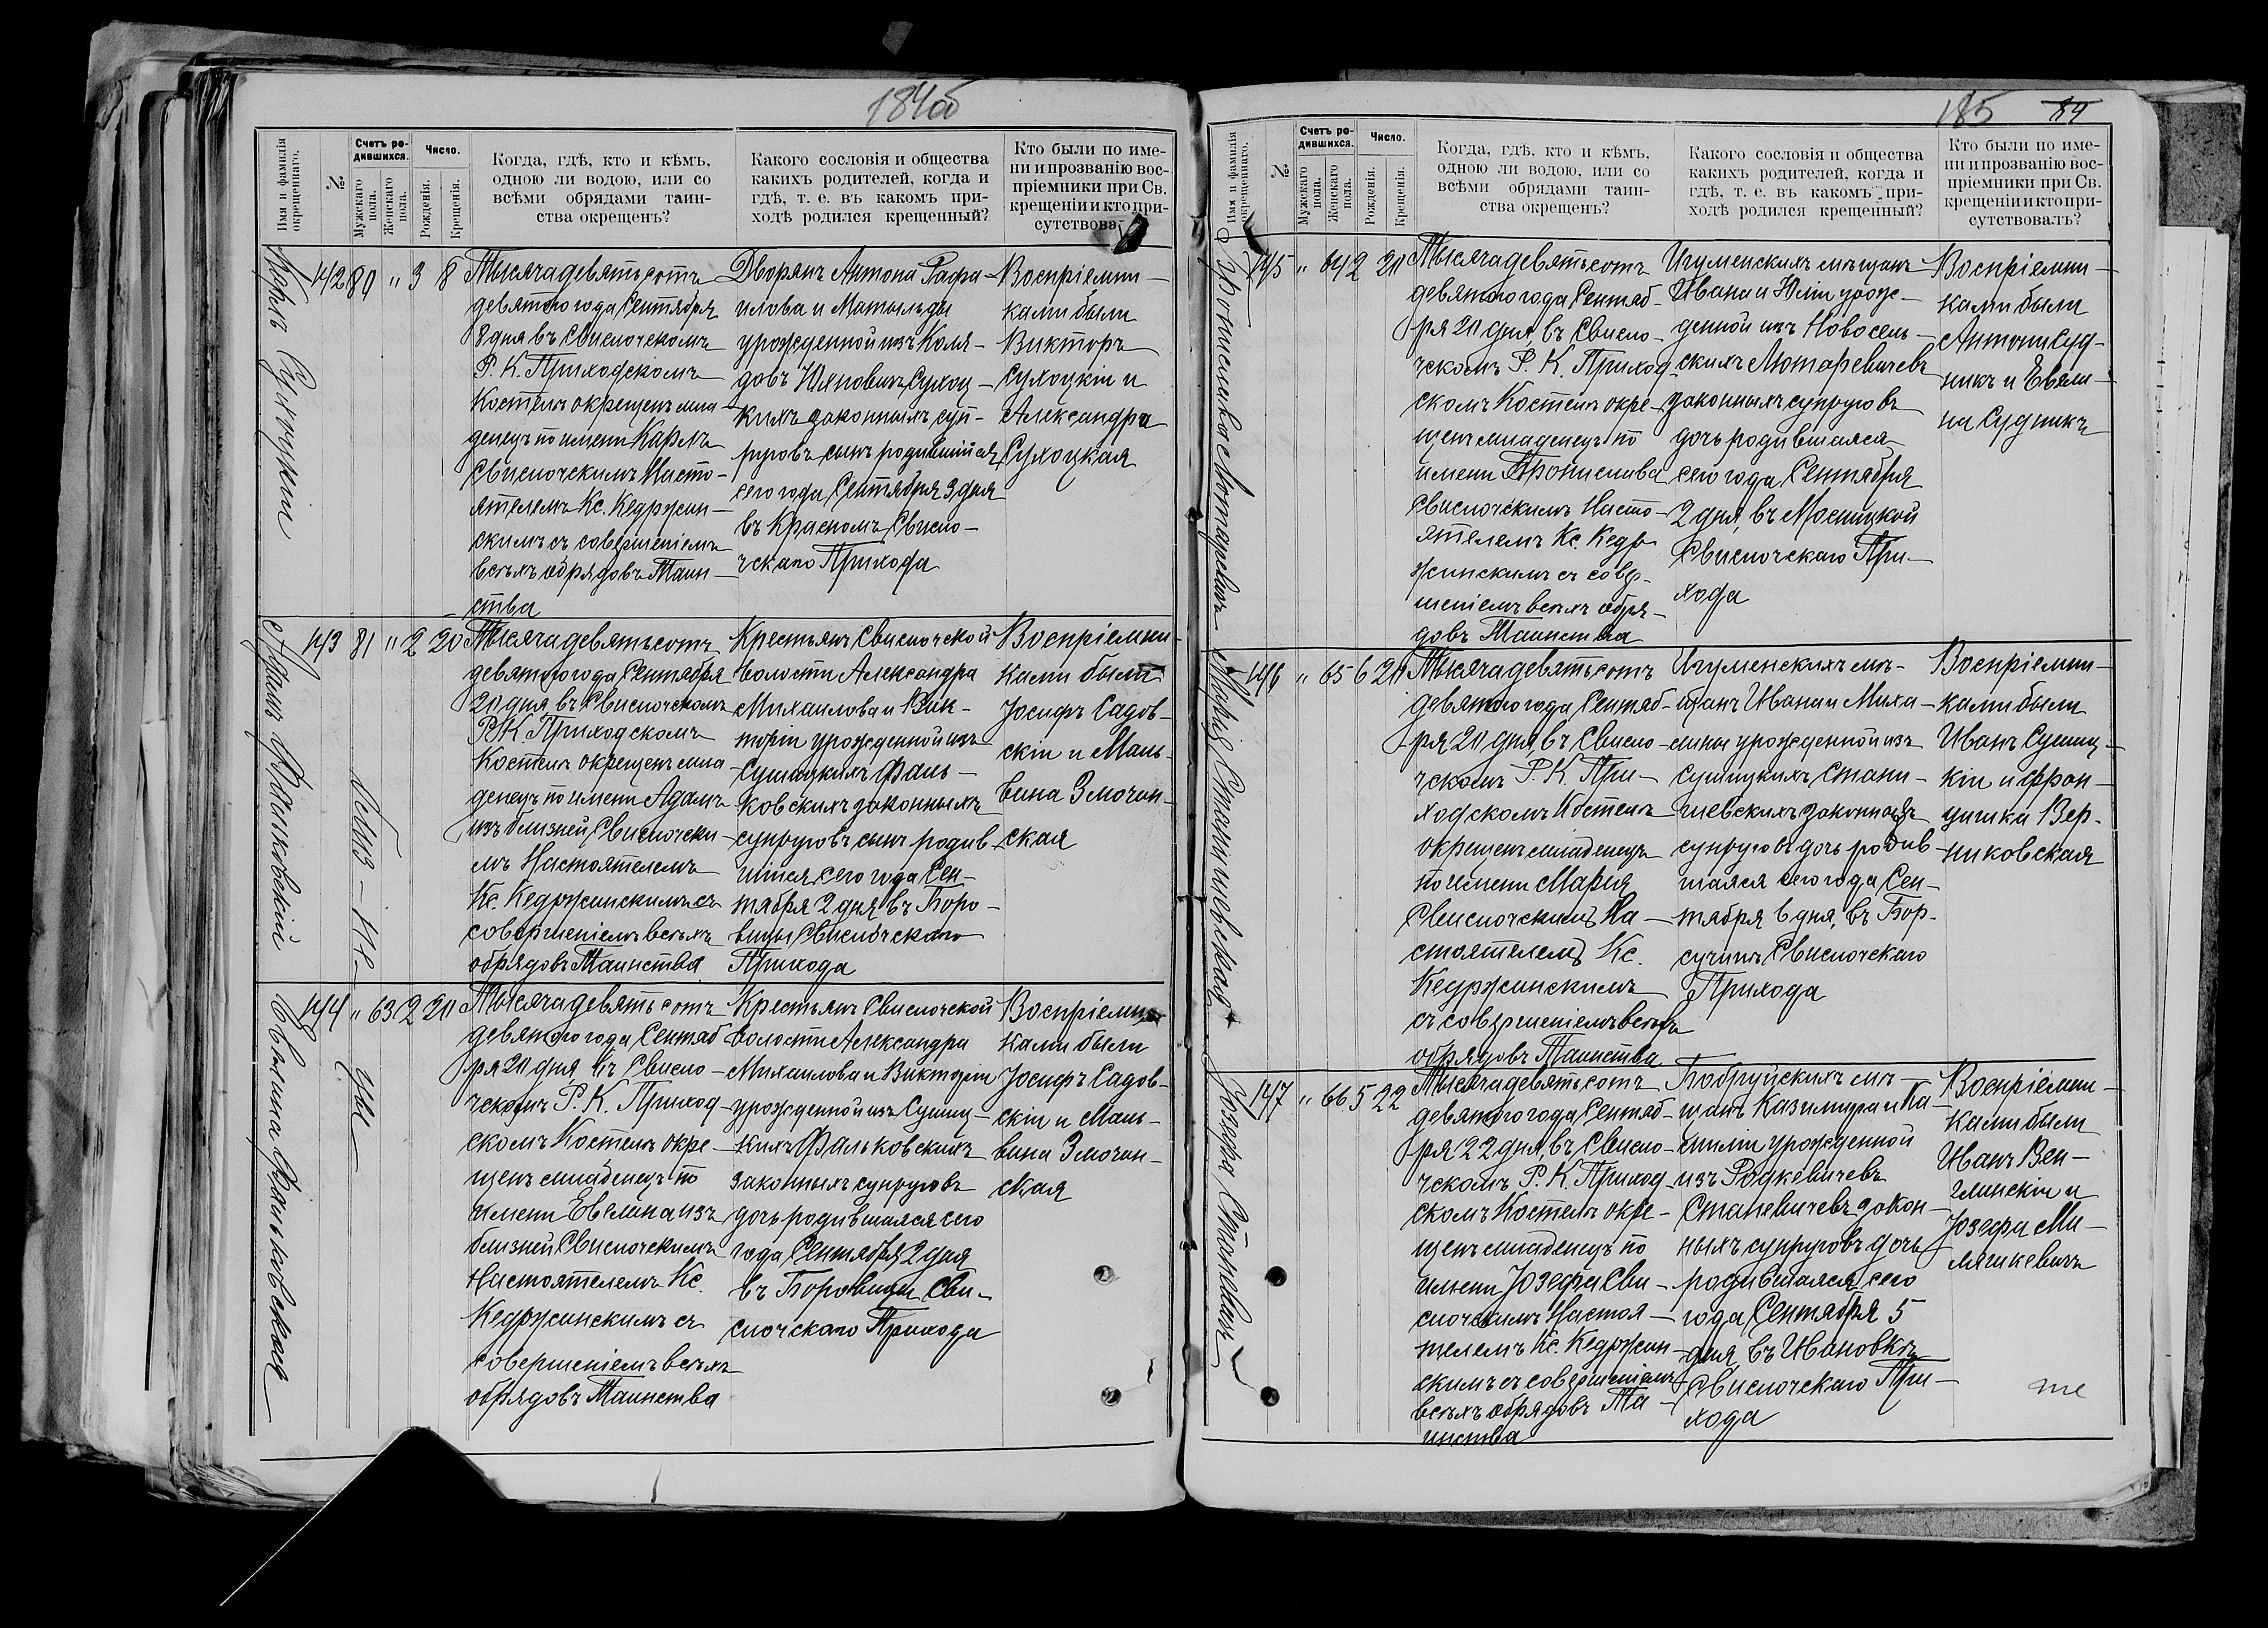 184об
Имя и фамилія
окрещеннаго.
№
Счетъ ро-
дившихся.
Мужскаго
пола.
Женскаго
пола.
Число.
Рожденія.
Крещенія.
Когда, гдѣ, кто и кѣмъ,
одною ли водою, или со
всѣми обрядами таин-
ства окрещенъ?
Какого сословія и общества
какихъ родителей, когда и
гдѣ, т. е. въ какомъ при-
ходѣ родился крещенный?
Кто были по име-
ни и прозванію вос-
пріемники при Св.
крещеніи и кто при-
сутствова
142 80 " 3 8
Тысяча девятьсотъ
девятого года Сентября
8 дня въ Свислочскомъ
Р. К. Приходскомъ
Костелѣ окрещенъ мла-
денецъ по имени Карлъ
Свислочскимъ Насто-
ятелемъ Кс. Кедржин-
скимъ съ совершеніемъ
всѣхъ обрядовъ Таин-
ства
Дворянъ Антона Рафа-
илова и Матыльды
урожденной изъ Коля-
довъ Юхновичъ Сухоц-
кихъ законныхъ суп-
руговъ сынъ родившійся
сего года Сентября 3 дня
въ Красномъ Свисло-
чскаго Прихода
Воспріемни-
ками были
Викторъ
Сухоцкій и
Александра
Сухоцкая
Адамъ Фальковскій
143 81 " 2 20
Тысяча девятьсотъ
девятого года Сентября
20 дня въ Свислочскомъ
Р.К. Приходскомъ
Костелѣ окрещенъ мла-
денецъ по имени Адамъ
изъ близней Свислочски-
мъ Настоятелемъ
Кс. Кедржинскимъ съ
совершеніемъ всѣхъ
обрядовъ Таинства
Крестьянъ Свислочской
волости Александра
Михаилова и Вик-
торіи урожденной изъ
Сушицкихъ Фаль-
ковскихъ законныхъ
супруговъ сынъ родив-
шійся сего года Сен-
тября 2 дня въ Боро-
вицы Свислочскаго
Прихода
Воспріемни-
ками были
Іосифъ Садов-
скій и Маль-
вина Змочин-
ская
Эвелина Фальковская
144 " 63 2 20
Тысяча девятьсотъ
девятого года Сентяб
ря 20 дня въ Свисло-
чскомъ Р. К. Приход-
скомъ Костелѣ окре-
щенъ младенецъ по
имени Евелина изъ
близней Свислочскимъ
Настоятелемъ Кс.
Кедржинскимъ съ
совершеніемъ всѣхъ
обрядовъ Таинства
Крестьянъ Свислочской
волости Александра
Михаилова и Викторіи
урожденной изъ Сушиц-
кихъ Фальковскихъ
законныхъ супруговъ
дочь родившаяся сего
года Сентября 2 дня
въ Боровицы Сви-
слочскаго Прихода
Воспріемни
ками были
Іосифъ Садов-
скій и Маль-
вина Змочин-
ская
185 84
Имя и фамилія
окрещеннаго.
№
Счетъ ро-
дившихся.
Мужскаго
пола.
Женскаго
пола.
Число.
Рожденія.
Крещенія.
Когда, гдѣ, кто и кѣмъ,
одною ли водою, или со
всѣми обрядами таин-
ства окрещенъ?
Какого сословія и общества
какихъ родителей, когда и
гдѣ, т. е. въ какомъ при-
ходѣ родился крещенный?
Кто были по име-
ни и прозванію вос-
пріемники при Св.
крещеніи и кто при-
сутствовалъ?
145 " 64 2 20
Тысяча девятьсотъ
девятого года Сентяб-
ря 20 дня, въ Свисло-
чскомъ Р. К. Приход-
скомъ Костелѣ окре-
щенъ младенецъ по
имени Бронислава
Свислочскимъ Насто-
ятелемъ Кс. Кедр-
жинскимъ съ совер-
шеніемъ всѣхъ обря-
довъ Таинства
Игуменскихъ мѣщанъ
Ивана и Юліи урож-
денной изъ Новосель-
скихъ Лютаревичевъ
законныхъ супруговъ
дочь родившаяся
сего года Сентября
2 дня, въ
Свислочскаго При-
хода
Воспріемни-
ками были
Антони Суд-
никъ и Евели-
на Судникъ
Марія Станишевская
146 " 65 6 20
Тысяча девятьсотъ
девятого года Сентяб-
ря 20 дня, въ Свисло-
чскомъ Р. К. При-
ходскомъ Костелѣ
окрещенъ младенецъ
по имени Марія
Свислочскимъ На-
стоятелемъ Кс.
Кедржинскимъ
съ совершеніемъ всѣхъ
обрядовъ Таинства
Игуменскихъ мѣ-
щанъ Ивана и Миха-
лины урожденной изъ
Сушицкихъ Стани-
шевскихъ законныхъ
супруговъ дочь родив-
шаяся сего года Сен-
тября 6 дня, въ Бор-
Свислочскаго
Прихода
Воспріемни-
ками были
Иванъ Сушиц-
кій и Фран-
цишка Вер-
никовская
Іозефа Станевичъ
147 " 66 5 22
Тысяча девятьсотъ
девятого года Сентяб-
ря 22 дня, въ Свисло-
чскомъ Р. К. Приход-
скомъ Костелѣ окре-
щенъ младенецъ по
имени Іозефа Сви-
слочскимъ Настоя-
телемъ Кс. Кедржин-
скимъ съ совершеніемъ
всѣхъ обрядовъ Та-
инства
Бобруйскихъ мѣ-
щанъ Казимира и Ка-
миліи урожденной
изъ Родкевичевъ
Станевичевъ закон-
ныхъ супруговъ дочь
родившаяся сего
года Сентября 5
дня, въ Ивановкѣ
Свислочскаго При-
хода
Воспріемни-
ками были
Иванъ Вен-
глинскій и
Іозефа Ми-
ляшкевичъ